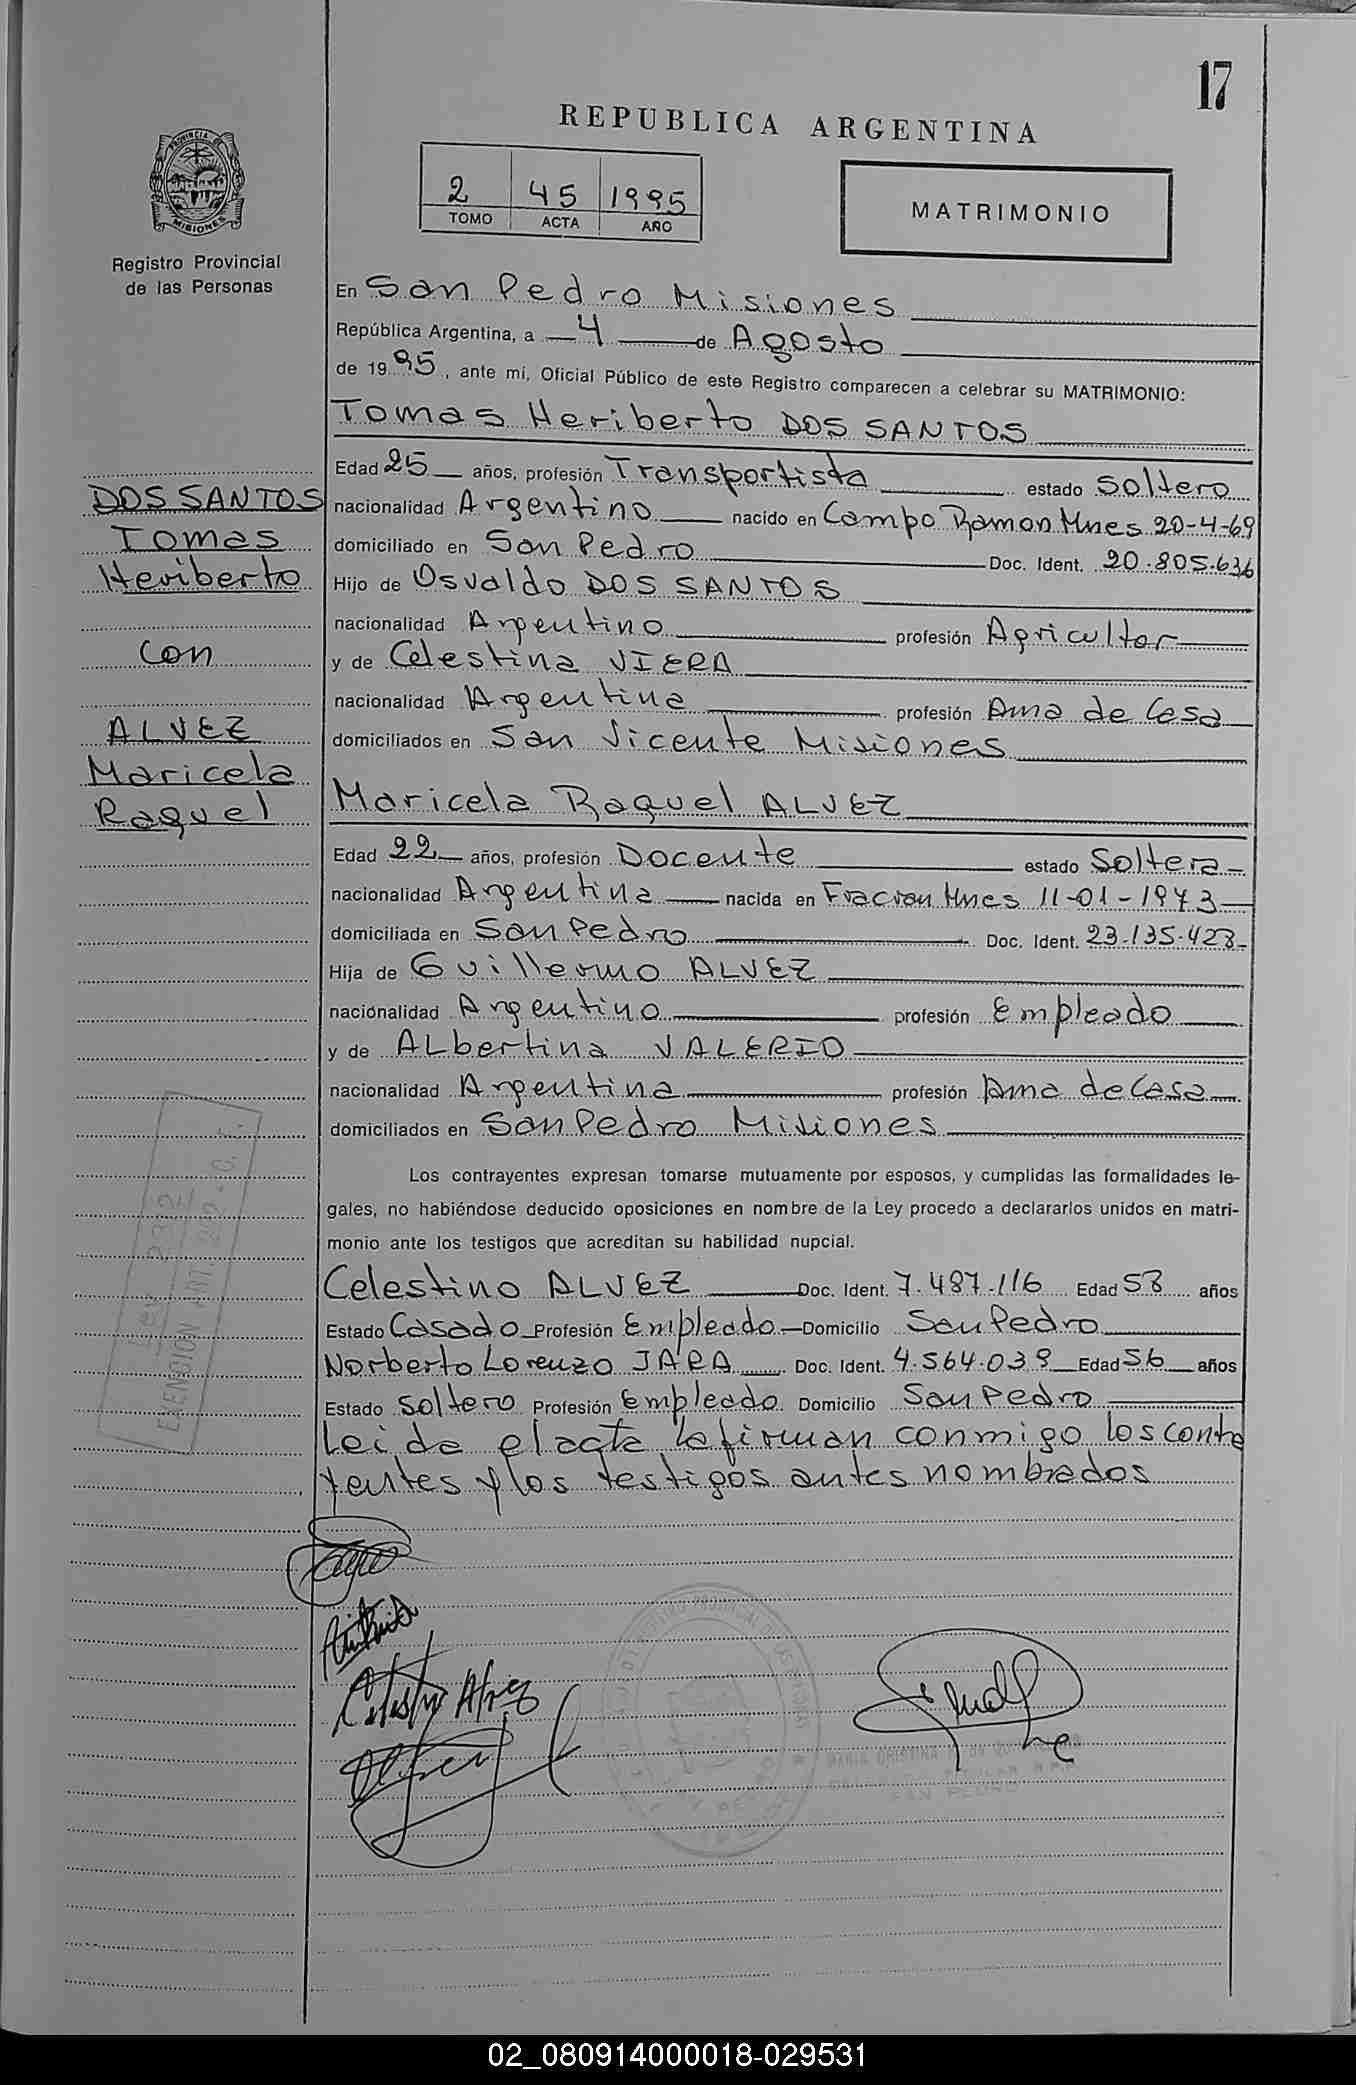 17
REPUBLICA ARGENTINA
2 45 1995
TOMO ACTA AÑO
MATRIMONIO
PROVINCIA DE
MISIONES
Registro Provincial
de las Personas
En San Pedro Misiones
República Argentina, a 4 de Agosto
de 1995, ante mí, Oficial Público de este Registro comparecen a celebrar su MATRIMONIO:
Tomas Heriberto DOS SANTOS
Edad 25 años, profesión Transportista estado Soltero
nacionalidad Argentino nacido en Campo Ramon Mnes 20-4-69
domiciliado en San Pedro Doc. Ident. 20.805.636
Hijo de Osvaldo DOS SANTOS
nacionalidad Argentino profesión Agricultor
y de Celestina VIERA
nacionalidad Argentina profesión Ama de Casa
domiciliados en San Vicente Misiones
DOS SANTOS
Tomas
Heriberto
con
ALVEZ
Maricela
Raquel
Maricela Raquel ALVEZ
Edad 22 años, profesión Docente estado Soltera
nacionalidad Argentina nacida en Fracran Mnes 11-01-1973
domiciliada en San Pedro Doc. Ident. 23.135.423
Hija de Guillermo ALVEZ
nacionalidad Argentino profesión Empleado
y de Albertina VALERIO
nacionalidad Argentina profesión Ama de Casa
domiciliados en San Pedro Misiones
Los contrayentes expresan tomarse mutuamente por esposos, y cumplidas las formalidades le-
gales, no habiéndose deducido oposiciones en nombre de la Ley procedo a declararlos unidos en matri-
monio ante los testigos que acreditan su habilidad nupcial.
Celestino ALVEZ Doc. Ident. 7.487.116 Edad 58 años
Estado Casado Profesión Empleado Domicilio San Pedro
Norberto Lorenzo JARA Doc. Ident. 4.564.039 Edad 56 años
Estado Soltero Profesión Empleado Domicilio San Pedro
Leida el acta la firman conmigo los contra
yentes y los testigos antes nombrados
Celestino Alvez
MARIA CRISTINA
SAN PEDRO
02_080914000018-029531